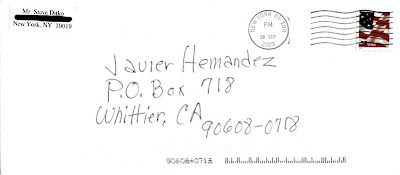 Mr. Steve Ditko
New York, NY 10019
NEW YORK NY 100
PM
2003
USA
Javier Hernandez
P.O. Box 718
Whittier, CA
90608-0718
90608+0718